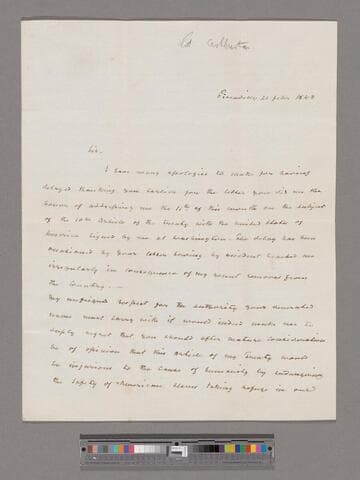 Ld Ashburton
Piccadilly 21 Feby 1843
Sir,
I owe many apologies to make for having
delayed thanking you earlier for the letter you did me the
honor of addressing me the 11th of this month on the subject
of the 10th Article of the Treaty with the United States of
America signed by me at Washington. The delay has been
occasioned by your letter having by accident reached me
irregularly in consequence of my recent removal from
the Country. —
My unfeigned respect for the authority your venerated
name must carry with it would indeed make me
deeply regret that you should after mature consideration
be of opinion that this Article of my Treaty would
be injurious to the cause of humanity by endangering
the safety of American slaves taking refuge in our